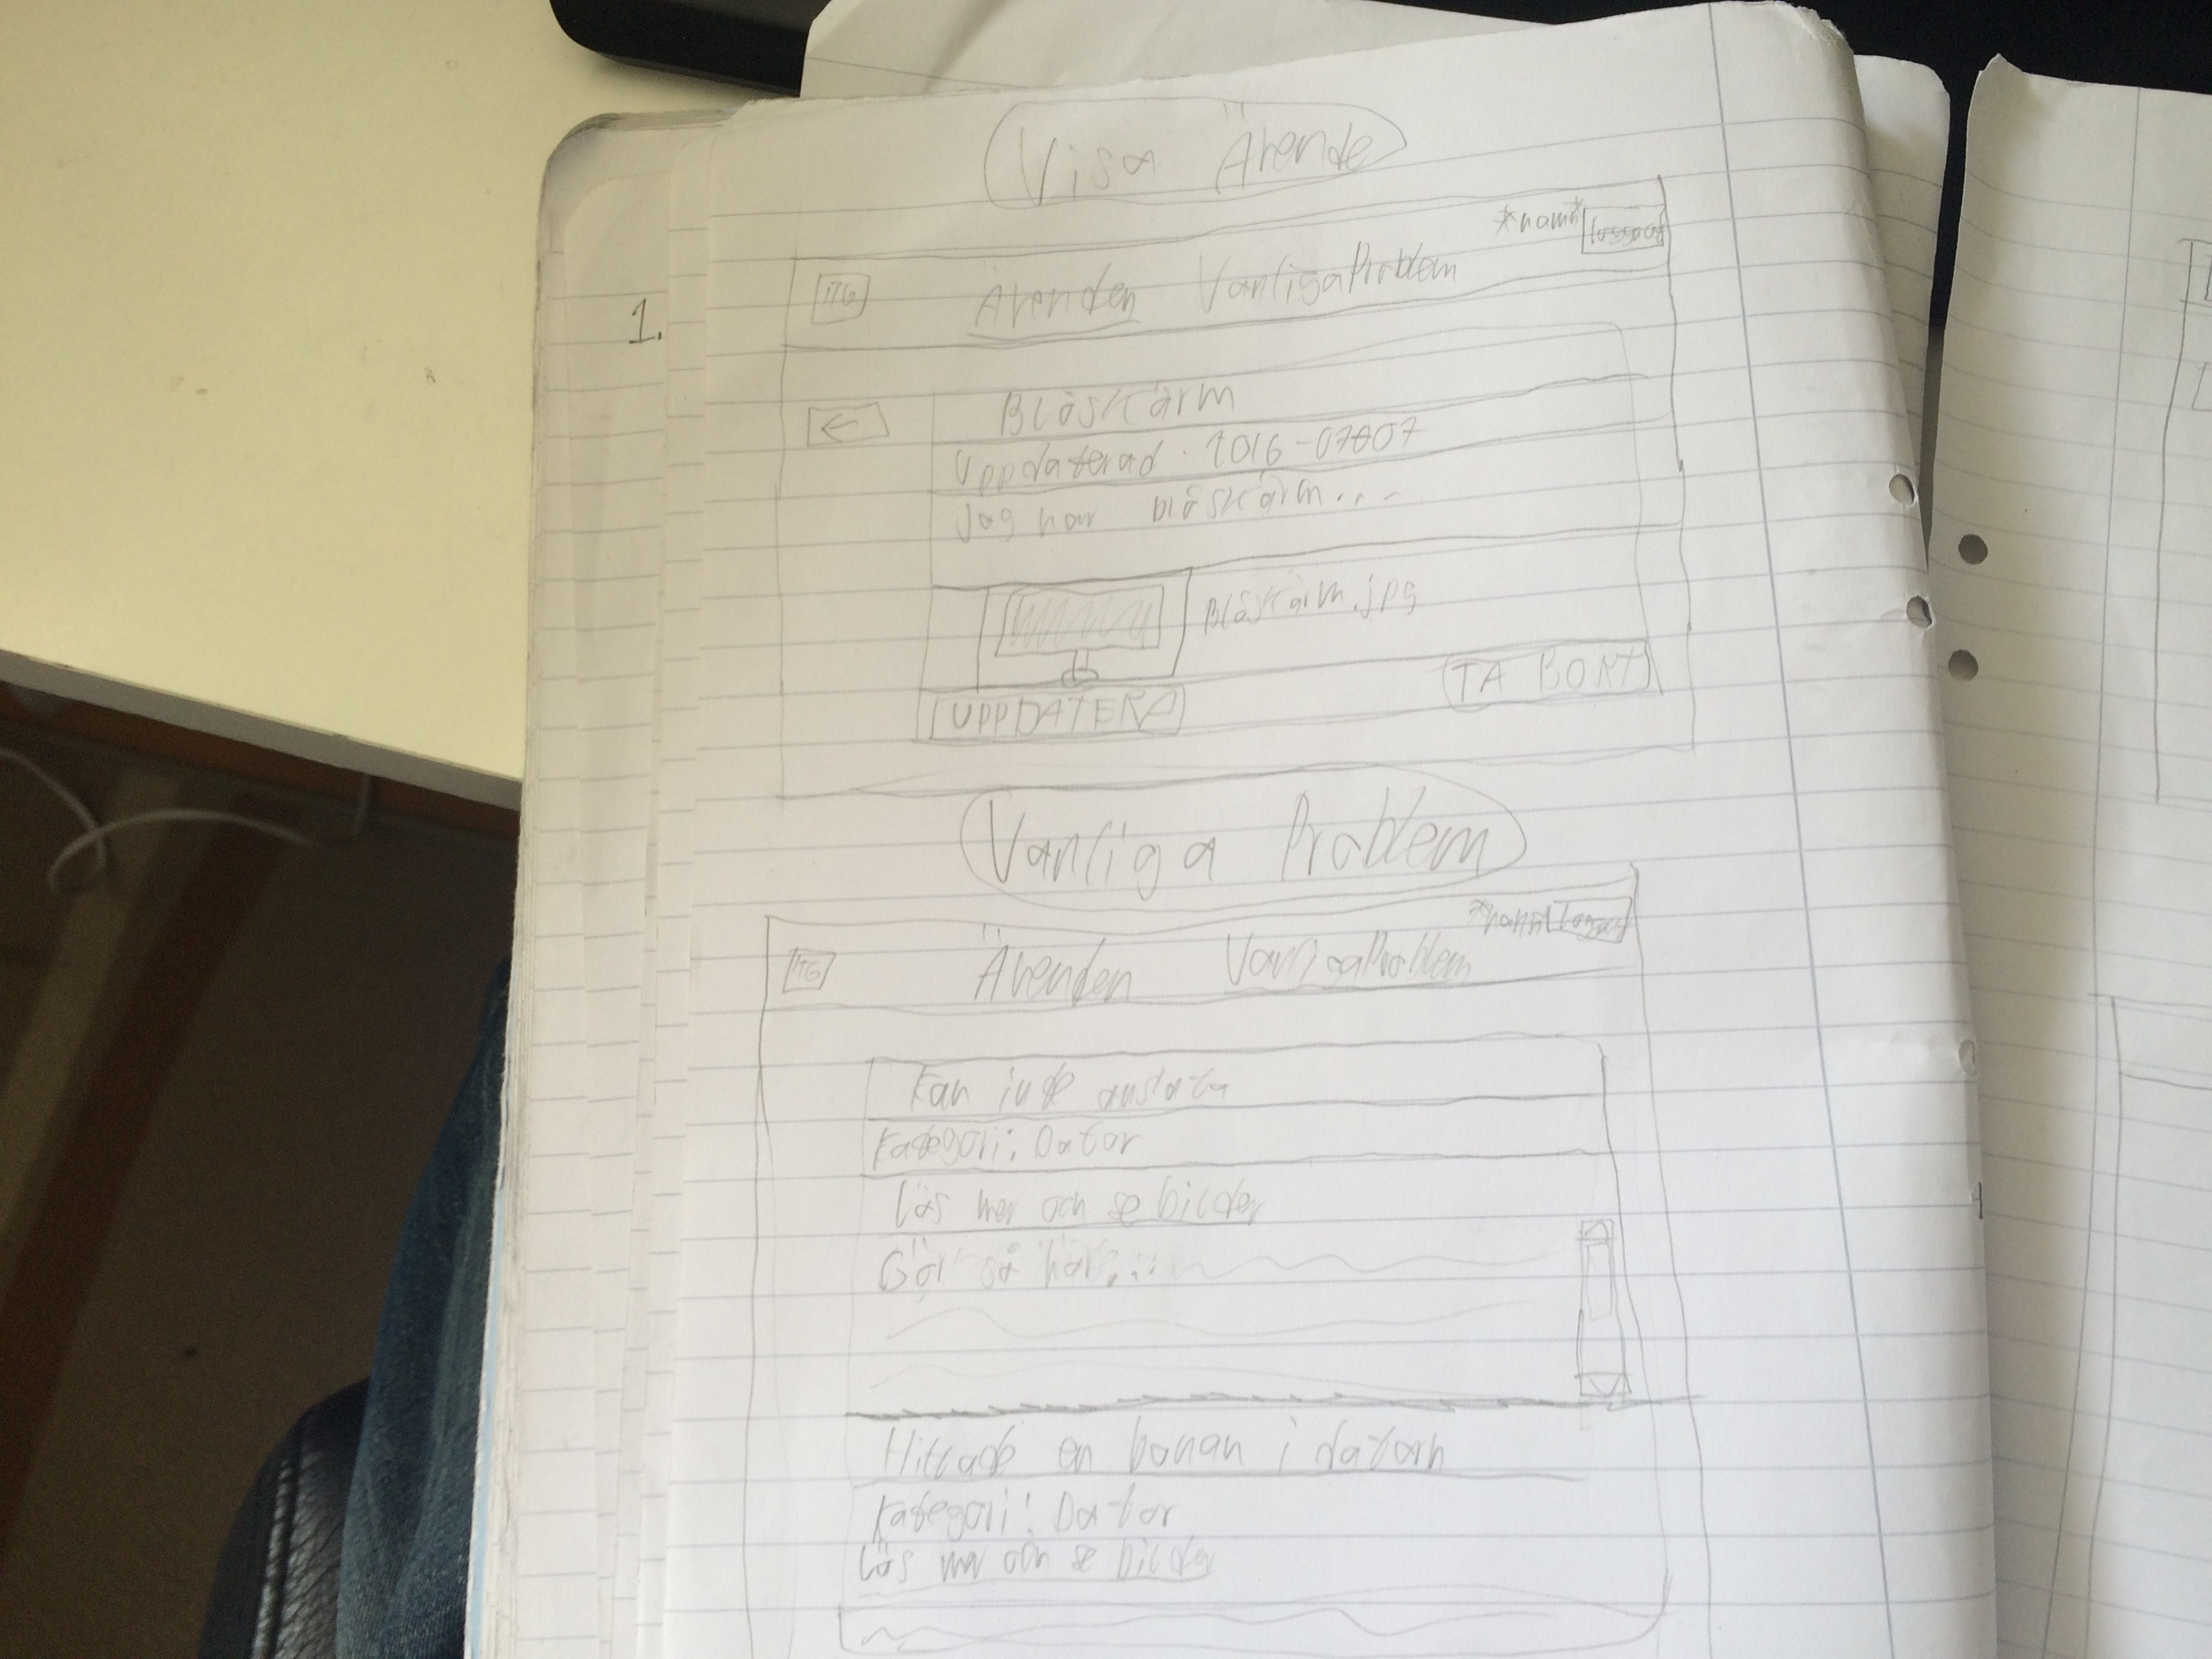 Visa Ärende
1.
*namn* logout
ITG Ärenden VanligaProblem
←
Blåskärm
Uppdaterad: 2016-07-07
Jag har blåskärm...
Blåskärm.jpg
UPPDATERA TA BORT
Vanliga Problem
*namn* logout
ITG Ärenden VanligaProblem
Kan inte
Kategori: Dator
Läs mer och se bilder
Gör så här:...
Hittade en banan i datorn
Kategori: Dator
Läs mer och se bilder